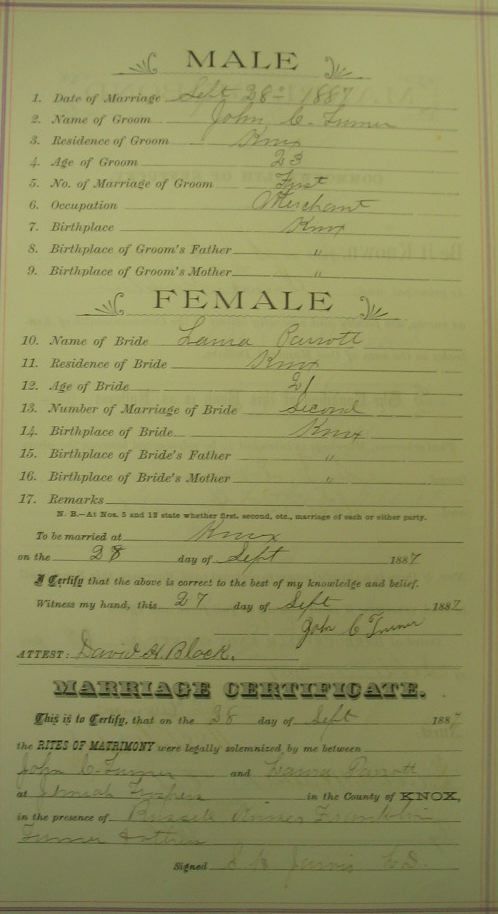 MALE
1. Date of Marriage Sept 28th 1887
2. Name of Groom John C. Turner
3. Residence of Groom Knox
4. Age of Groom 23
5. No. of Marriage of Groom First
6. Occupation Merchant
7. Birthplace Knox
8. Birthplace of Groom's Father "
9. Birthplace of Groom's Mother "
FEMALE
10. Name of Bride Laura Parrott
11. Residence of Bride Knox
12. Age of Bride 21
13. Number of Marriage of Bride Second
14. Birthplace of Bride Knox
15. Birthplace of Bride's Father "
16. Birthplace of Bride's Mother "
17. Remarks
N. B.—At Nos. 5 and 13 state whether first, second, etc., marriage of each or either party.
To be married at Knox
on the 28 day of Sept 1887
I Certify that the above is correct to the best of my knowledge and belief.
Witness my hand, this 27 day of Sept 1887
John C Turner
ATTEST: David H. Black.
MARRIAGE CERTIFICATE.
This is to Certify, that on the 28 day of Sept 1887
the RITES OF MATRIMONY were legally solemnized by me between
John C Turner and Laura Parrott
at in the County of KNOX,
in the presence of Franklin
Turner & others
Signed